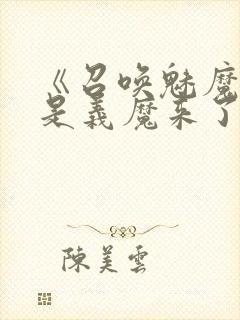 《召唤魅魔
是義魔来了
陳美雲